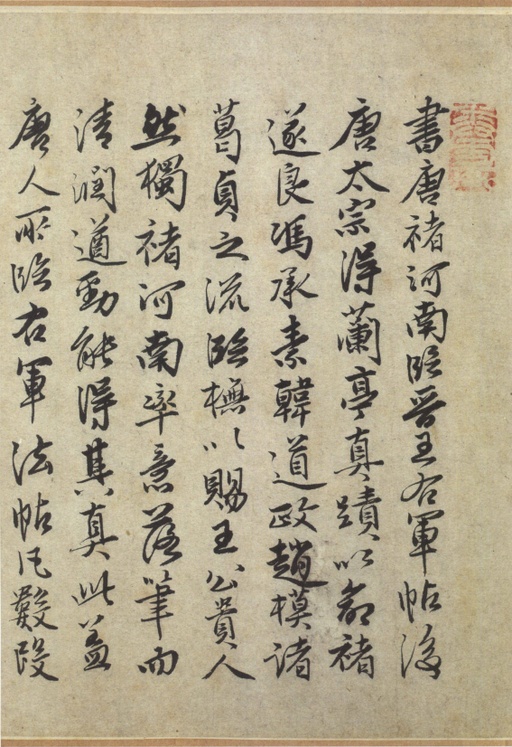 書唐褚河南臨晉王右軍帖後
唐太宗得蘭亭真蹟以命褚
遂良馮承素韓道政趙模諸
葛貞之流臨橅以賜王公貴人
然獨褚河南率意落筆而
清潤遒勁能得其真此蓋
唐人所臨右軍法帖凡數段